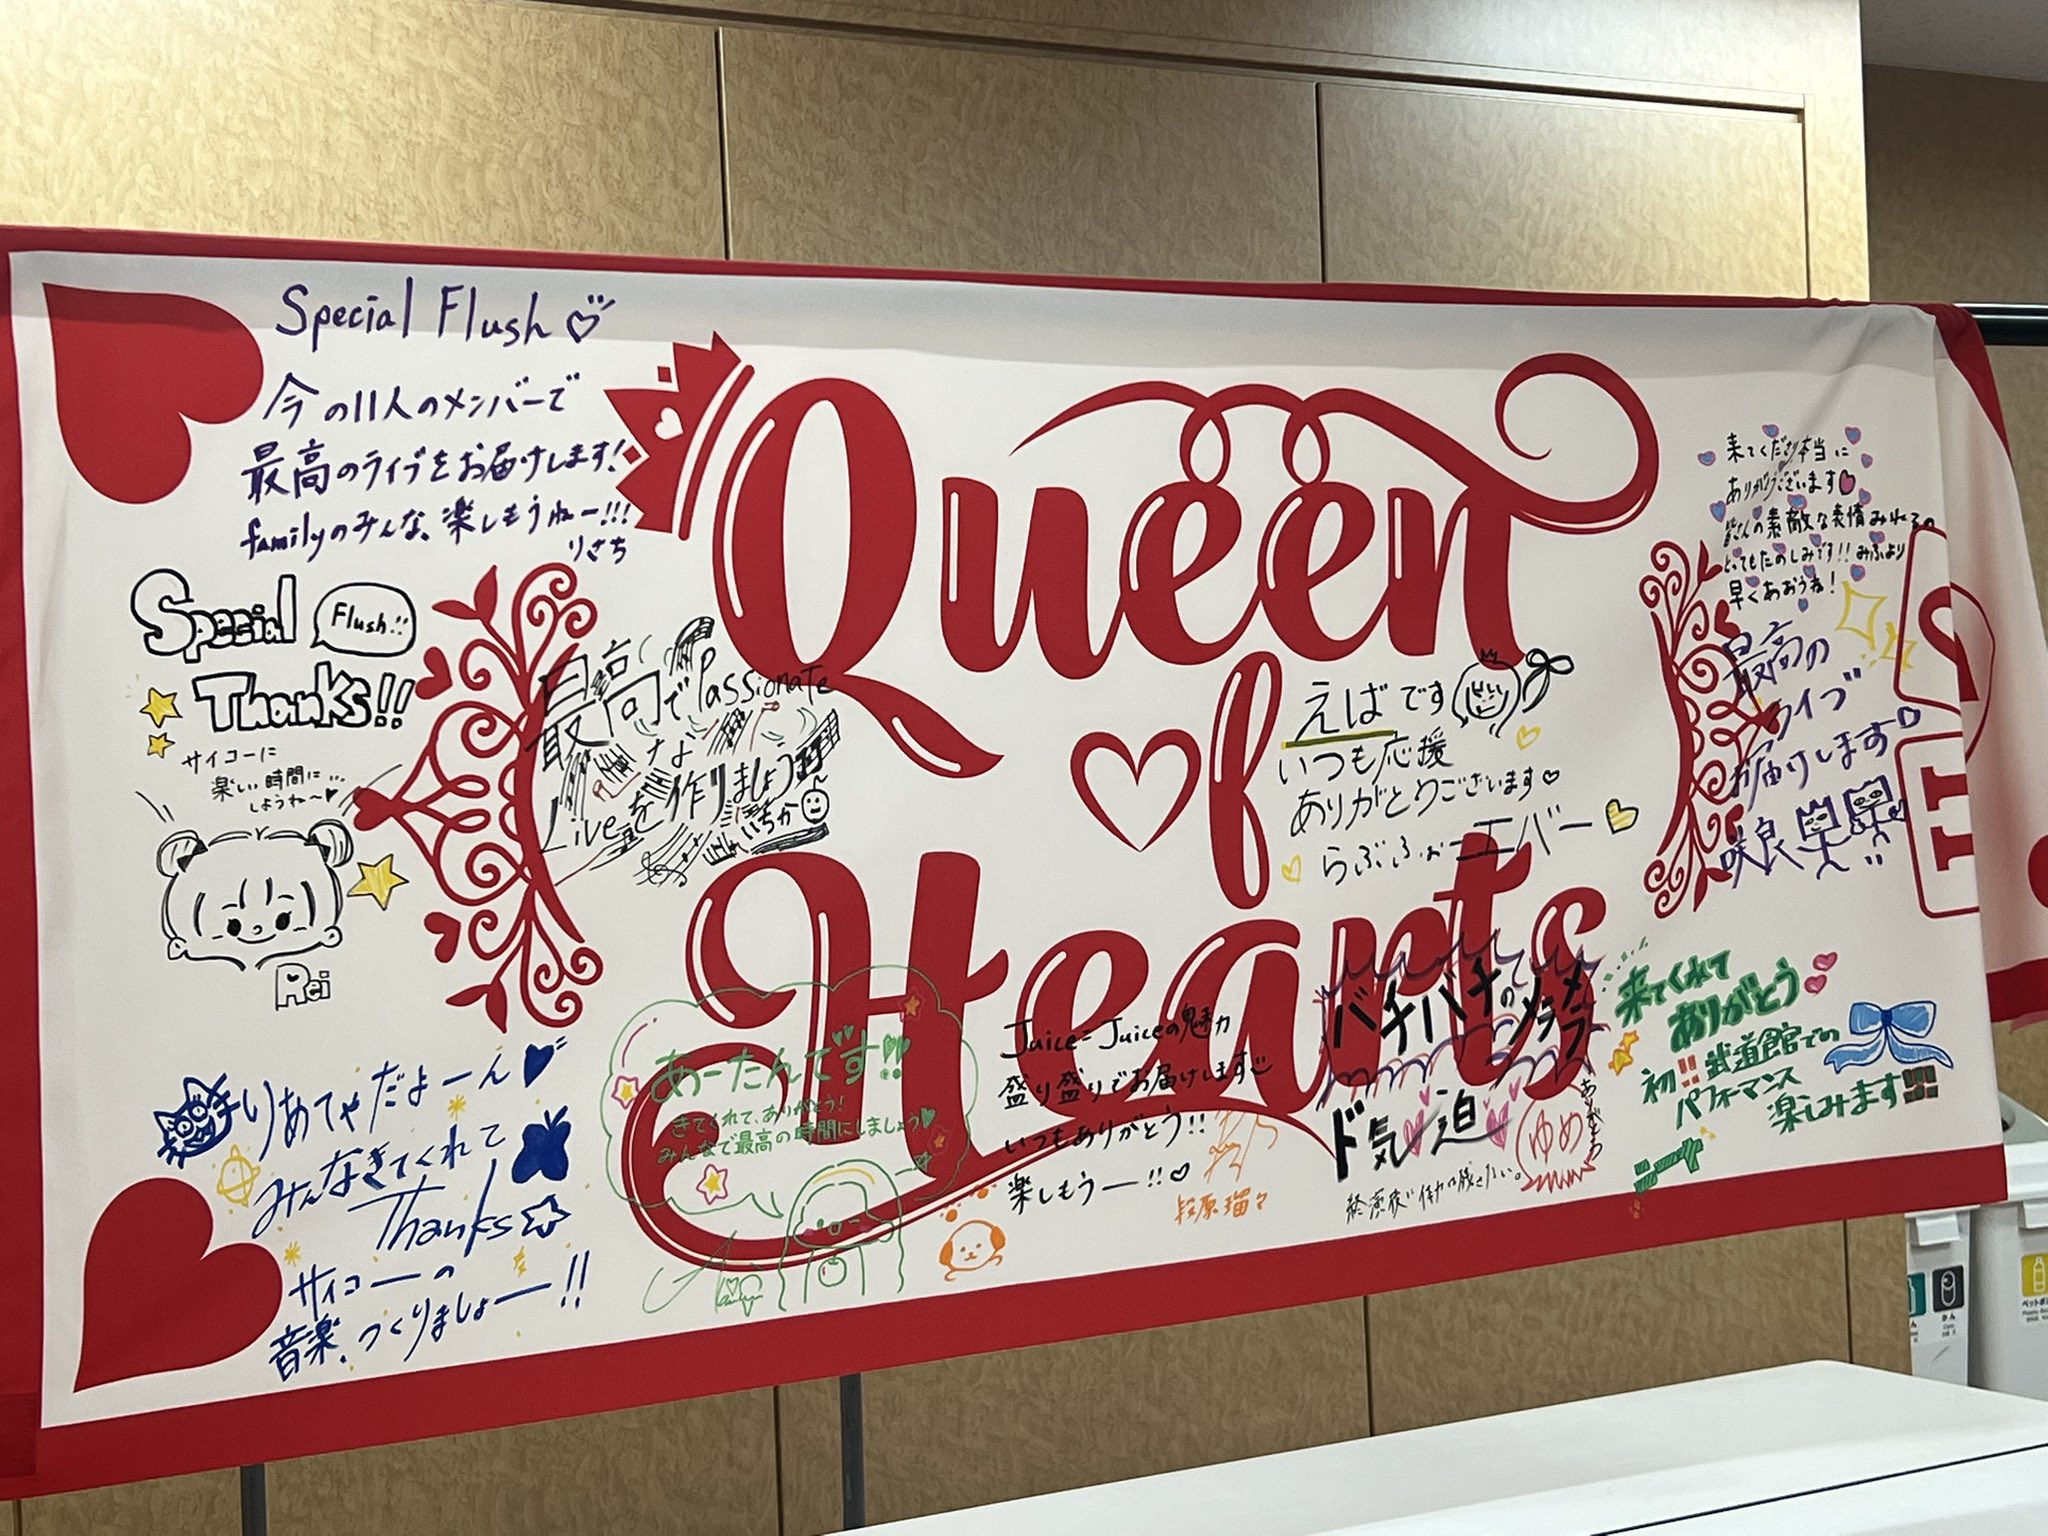 Special Flush♡
今の11人のメンバーで
最高のライブをお届けします!
familyのみんな、楽しもうねー!!!
りさち
Special
Flush!!
Thanks!!
サイコーに
楽しい時間に...
しようね〜♥
Rei
Queen
of
Hearts
最高でPassionaTe
な
Liveを作りましょう
いちか
えばです
いつも応援
ありがとうございます♡
らぶふぉーエバー
来てくださり本当に
ありがとうございます
皆さんの素敵な表情みれるの
とってもたのしみです!! みふより
早くあおうね!
最高の
ライブ
お届けします♡
咲良
りあてゃだよーん♥
みんなきてくれて
Thanks☆
サイコーの
音楽、つくりましょー!!
あーたんです!!
きてくれて、ありがとう!
みんなで最高の時間にしましょう♥
Juice=Juiceの魅力
盛り盛りでお届けします
いつもありがとう!!
楽しもうー!!♡
段原瑠々
バチバチのメラメラ
ド気迫
ゆめ
来てくれて
ありがとう
初!!武道館での
パフォーマンス
楽しみます!!!
かん
ペットボトル